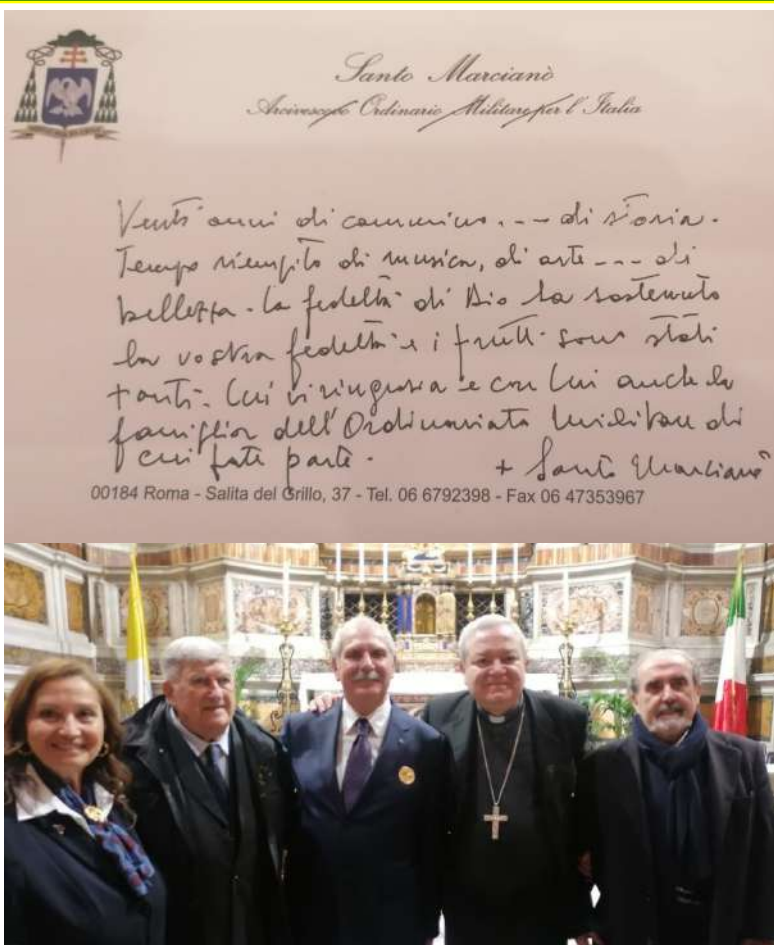 Santo Marcianò
Arcivescovo Ordinario Militare per l'Italia
Venti anni di cammino... di storia.
Tempo riempito di musica, di arte... di
bellezza. La fedeltà di Dio ha sostenuto
la vostra fedeltà e i frutti sono stati
tanti. Lui vi ringrazia e con Lui anche la
famiglia dell'Ordinariato Militare di
cui fate parte. + Santo Marcianò
00184 Roma - Salita del Grillo, 37 - Tel. 06 6792398 - Fax 06 47353967